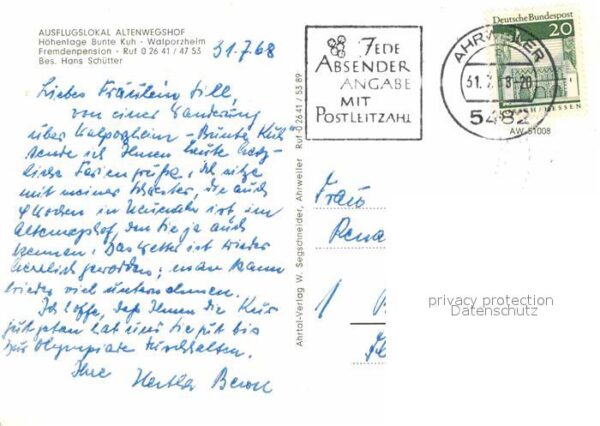 AUSFLUGSLOKAL ALTENWEGSHOF
Höhenlage Bunte Kuh - Walporzheim
Fremdenpension - Ruf 0 26 41 / 47 53
Bes. Hans Schütter
31.7.68
Liebes Fräulein Sill,
von einer Wanderung
über Walporzheim - Bunte Kuh
sende ich Ihnen heute herz-
liche Feriengrüße. Ich sitze
mit meiner Schwester, die auch
4 Wochen in Neuenahr ist, im
Altenwegshof, den Sie ja auch
kennen. Das Wetter ist wieder
herrlich geworden; man kann
wieder viel unternehmen.
Ich hoffe, daß Ihnen die Kur
gutgetan hat und Sie gut bis
zur Olympiade durchhalten.
Ihre Hertha
Ahrtal-Verlag W. Segschneider, Ahrweiler Ruf 0 26 41 / 53 89
JEDE
ABSENDER
ANGABE
MIT
POSTLEITZAHL
AHRWEILER
31.7. 8-20
5482
Deutsche Bundespost
20
LORSCH/HESSEN
AW-51008
Frau
Rena
privacy protection
Datenschutz